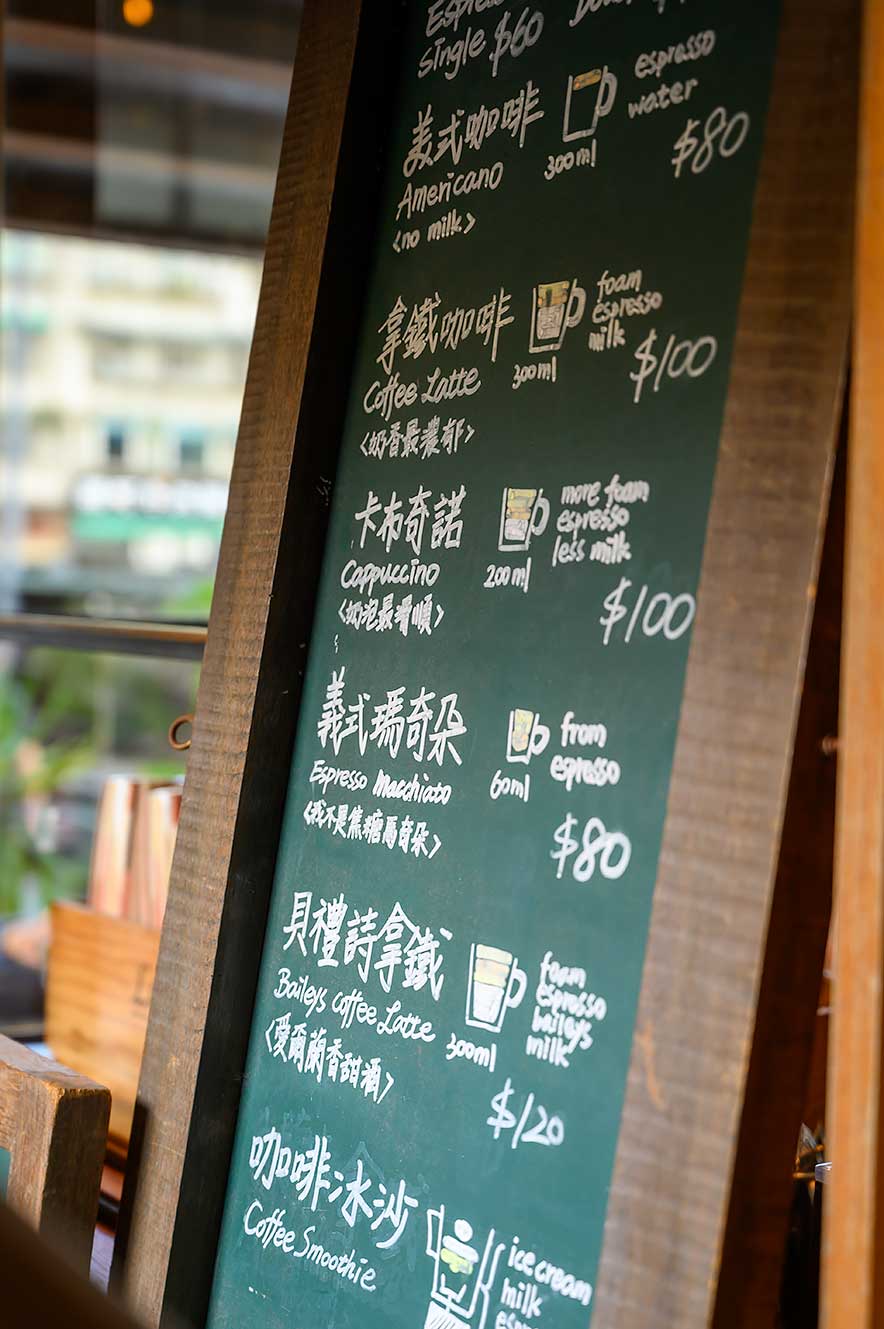 Single $60
美式咖啡
Americano
<no milk>
300ml
espresso
water
$80
拿鐵咖啡
Coffee Latte
<奶香最濃郁>
300ml
foam
espresso
milk
$100
卡布奇諾
Cappuccino
<奶泡最滑順>
200ml
more foam
espresso
less milk
$100
義式瑪奇朵
Espresso Macchiato
<我不是焦糖瑪奇朵>
60ml
from
espresso
$80
貝禮詩拿鐵
Baileys coffee Latte
<愛爾蘭香甜酒>
300ml
foam
espresso
baileys
milk
$120
咖啡冰沙
Coffee Smoothie
ice cream
milk